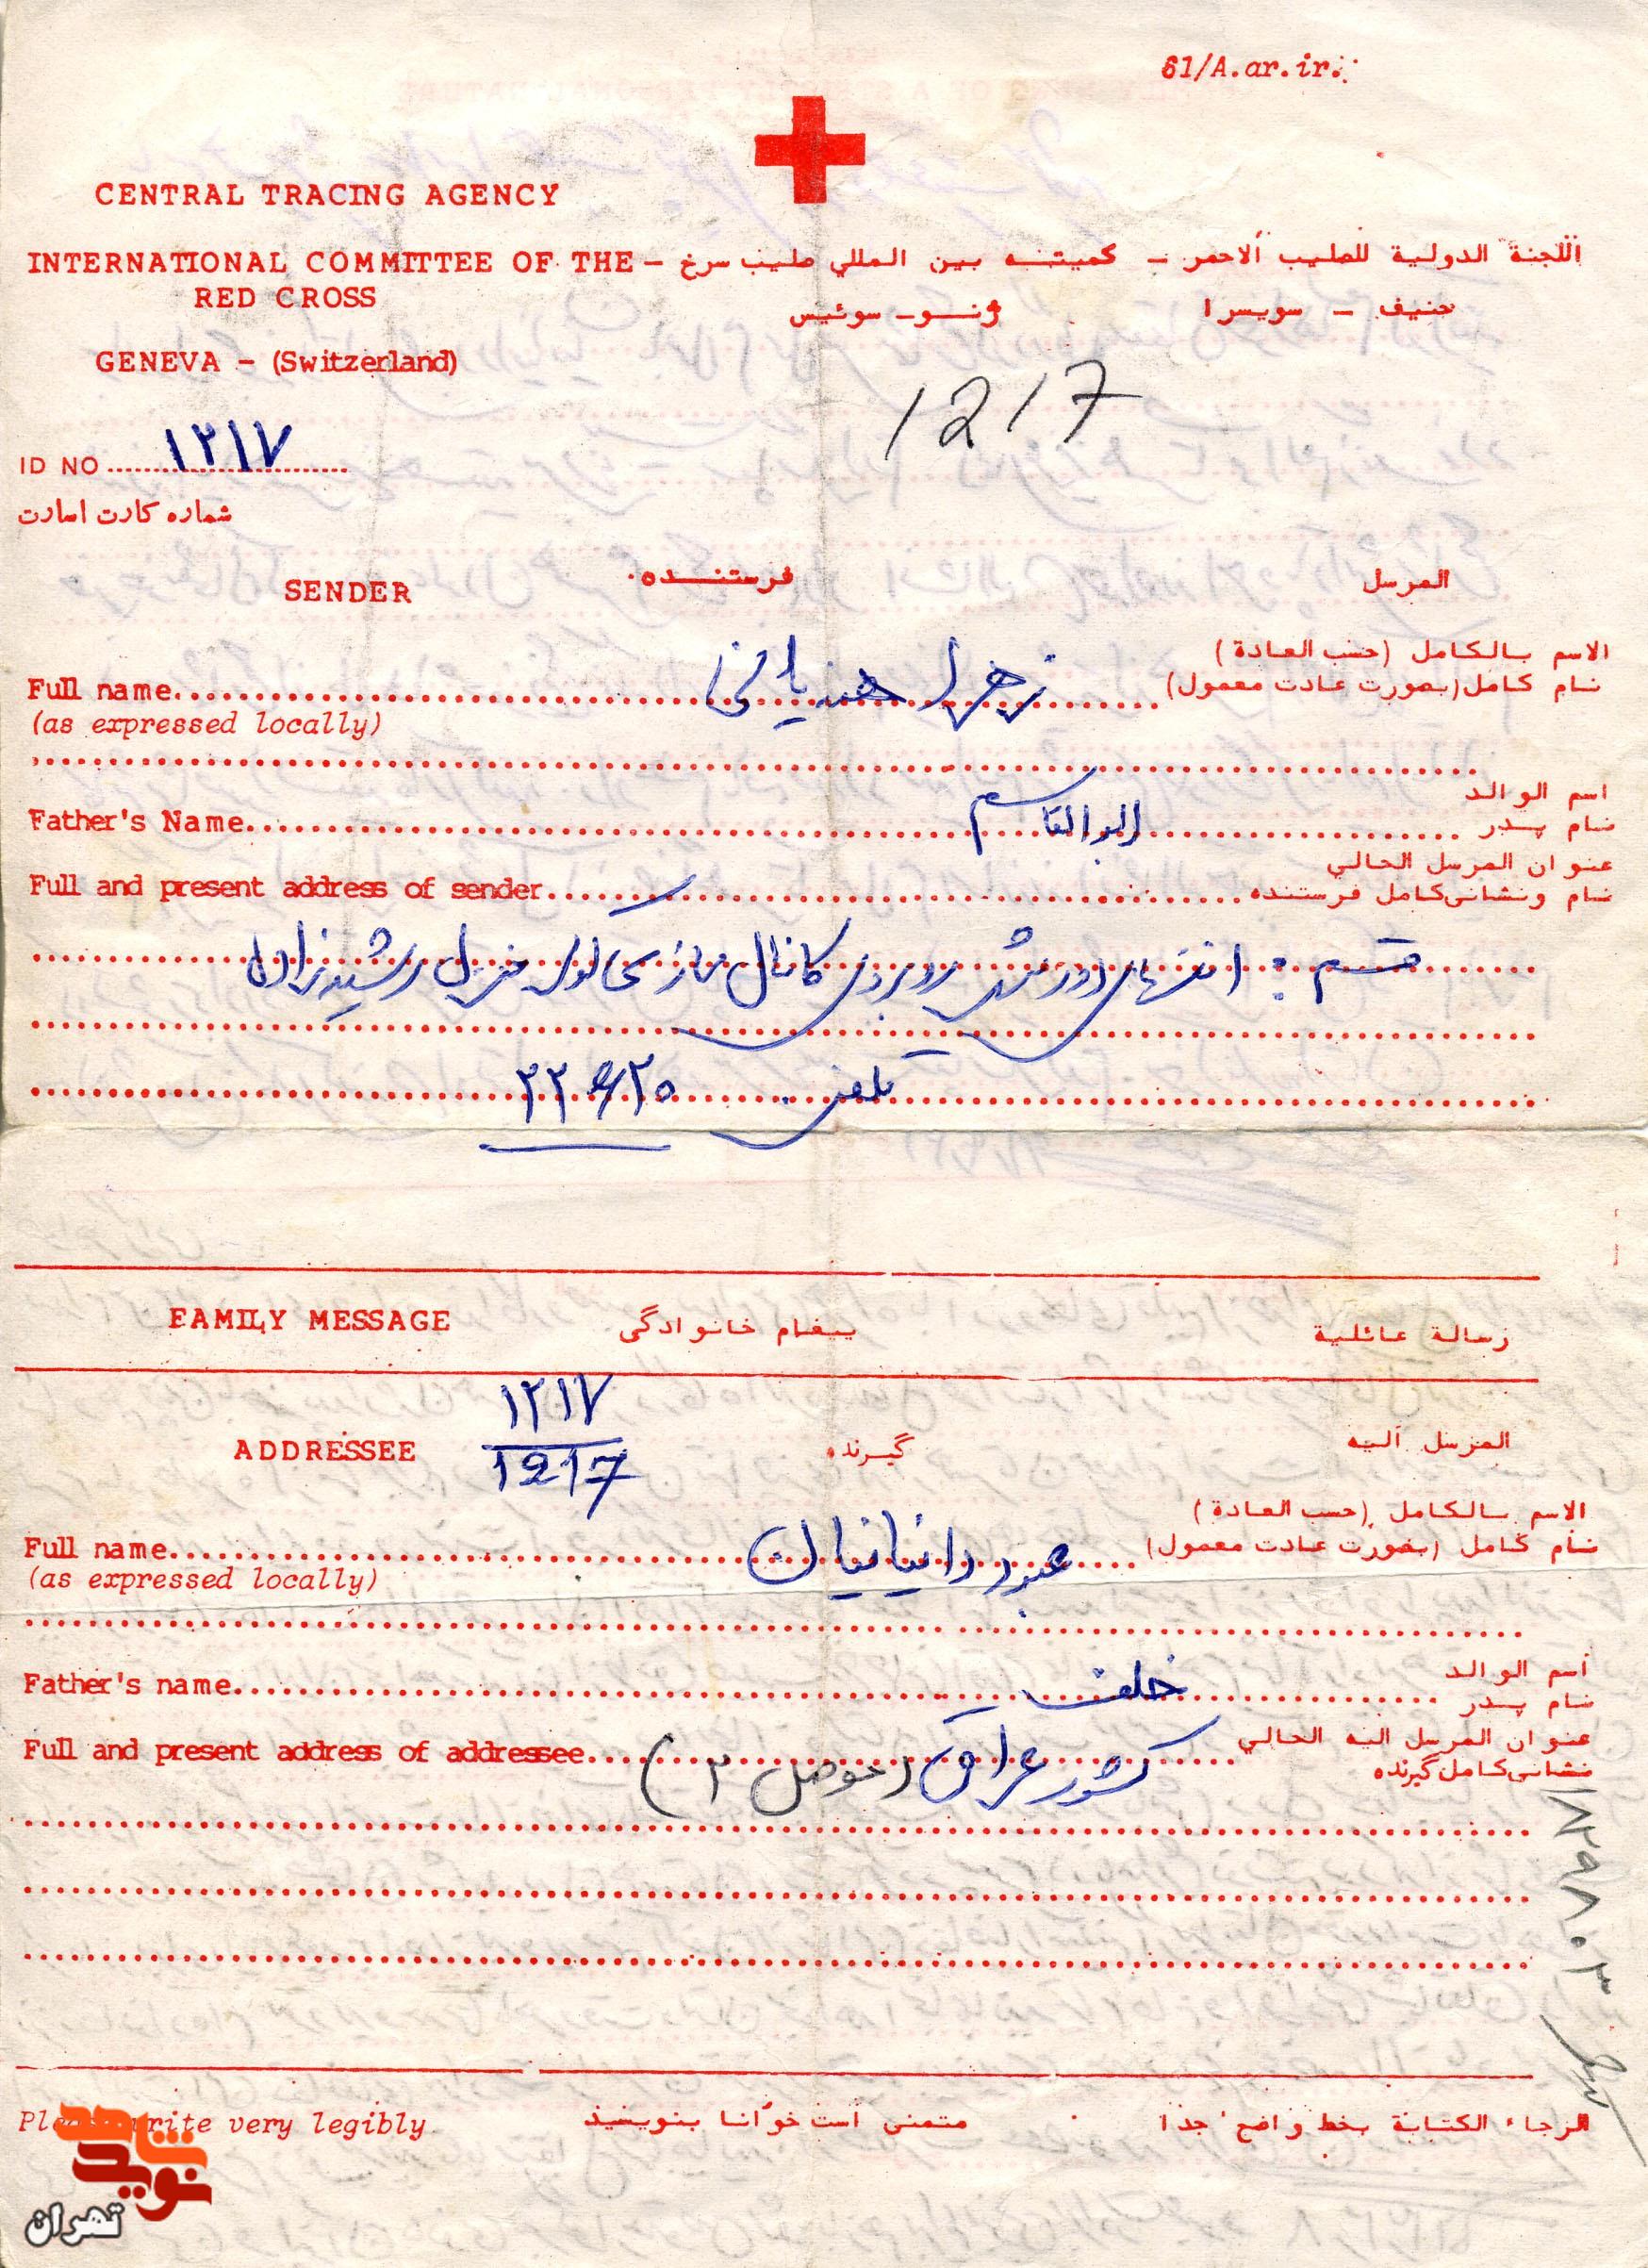 61/A.ar.ir.
CENTRAL TRACING AGENCY
INTERNATIONAL COMMITTEE OF THE – اللجنة الدولية للصليب ألاحمر – كميتــه بين المللي صليب سرخ –
RED CROSS
جنيف – سويسرا ژنــو – سوئيس
GENEVA – (Switzerland)
1217
ID NO ۱۲۱۷
شماره کارت اسارت
SENDER فرستنــده المرسل
الاسم بالكامل (حسب العادة)
Full name زهرا هندیانی نام كامل (بصورت عادت معمول)
(as expressed locally)
اسم الوالد
Father's Name ابوالقاسم نام پدر
عنوان المرسل الحالي
Full and present address of sender نام ونشانی كامل فرستنده
قسم: انتهای دورشهر روبروی کانال منزل رشیدزاده
تلفن
FAMILY MESSAGE پيغام خانوادگی رسالة عائلية
۱۲۱۷
ADDRESSEE 1217 گيرنده المرسل اليه
الاسم بالكامل (حسب العادة)
Full name عبود دانیانیان نام كامل (بصورت عادت معمول)
(as expressed locally)
اسم الوالد
Father's name خلف نام پدر
عنوان المرسل اليه الحالي
Full and present address of addressee کشور عراق (موصل ۲) نشانی كامل گيرنده
۱۸۲۹۸۰۳
Please write very legibly متمنی است خوانا بنويسيد الرجاء الكتابة بخط واضح جدا
نوید شاهد
تهران